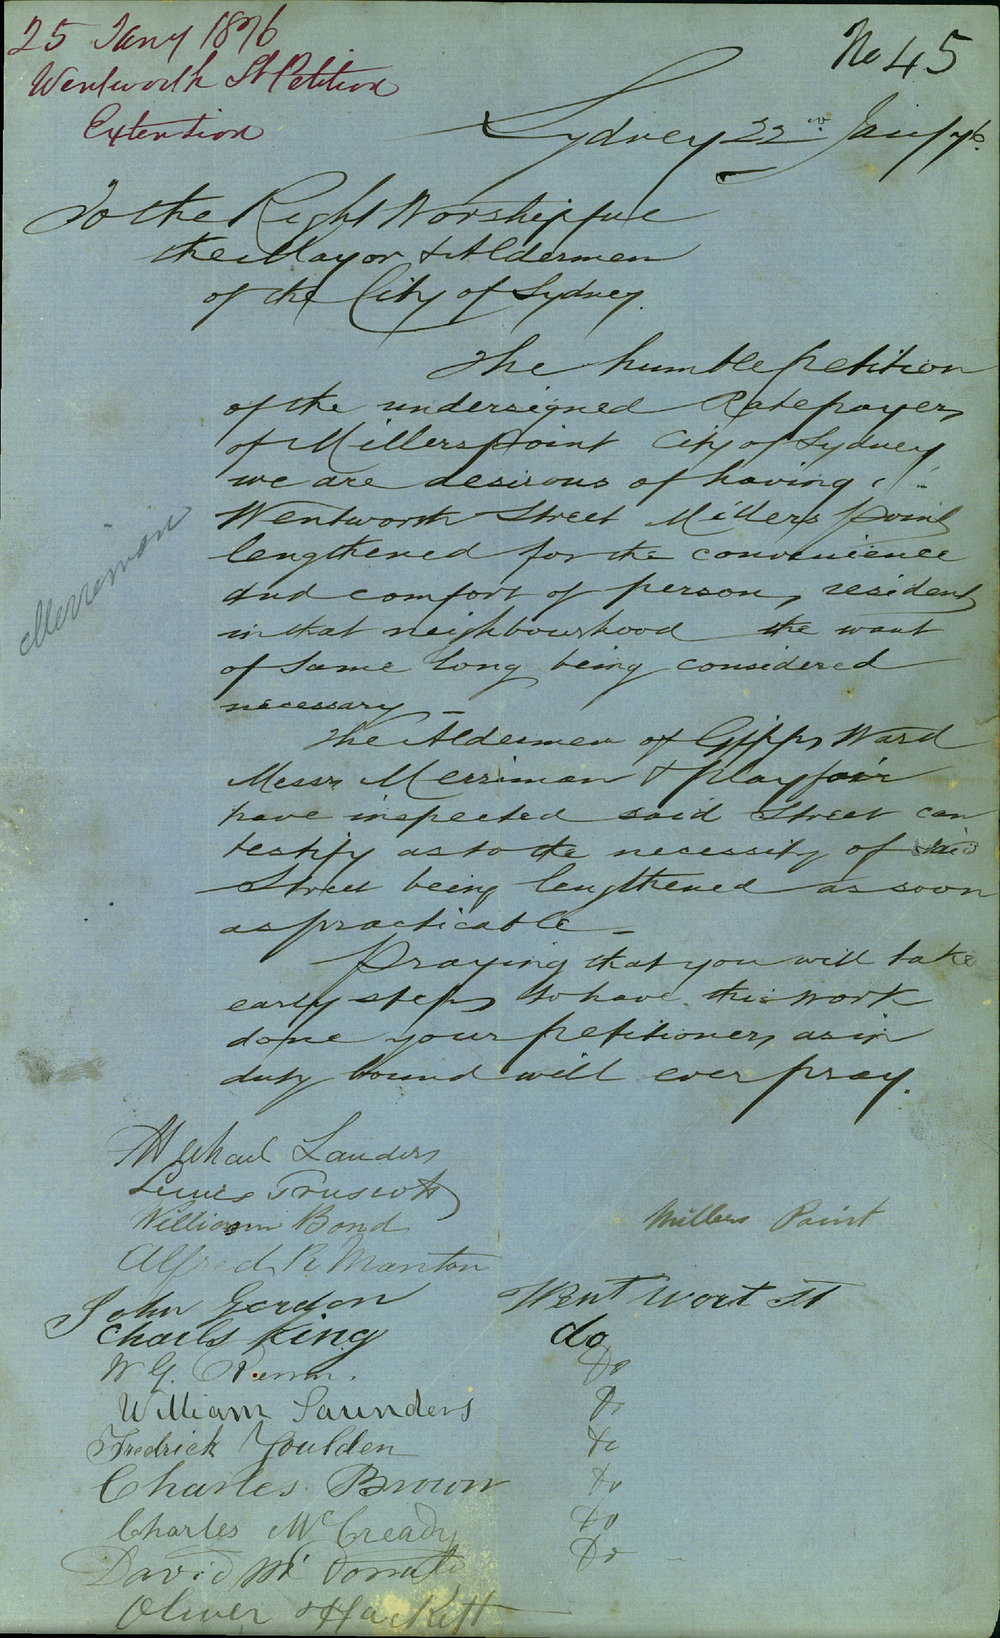 25 Jany 1876
Wentworth St Petition
Extension
No 45
Sydney 22nd Jany/76.
To the Right Worshipful
the Mayor & Aldermen
of the City of Sydney.
The humble petition
of the undersigned Ratepayers
of Millers Point City of Sydney
we are desirous of having
Wentworth Street Millers Point
lengthened for the convenience
and comfort of persons resident
in that neighbourhood the want
of same long being considered
necessary –
The Aldermen of Gipps Ward
Messrs Merriman & Playfair
have inspected said Street can
testify as to the necessity of said
Street being lengthened as soon
as practicable –
Praying that you will take
early steps to have this work
done your petitioners as in
duty bound will ever pray.
Merriman
Michael Sanders
Lewis Truscott
William Bond Millers Point
Alfred R Manton
John Gordon Went Wort St
Charls King do
W G. Do
William Saunders Do
Fredrick Youlden Do
Charles Brown Do
Charles McCready Do
David Mc Do
Oliver Hackett